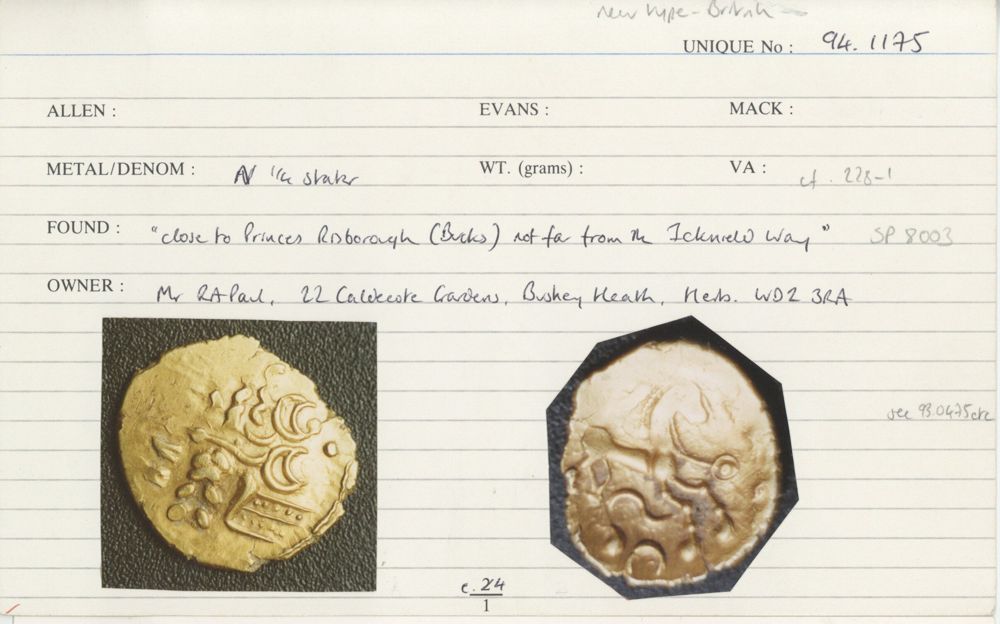 new type - British
UNIQUE No : 94.1175
ALLEN : EVANS : MACK :
METAL/DENOM : AV 1/4 stater WT. (grams) : VA : cf. 228-1
FOUND : "close to Princes Risborough (Bucks) not far from the Icknield Way" SP 8003
OWNER : Mr RA Paul, 22 Caldecote Gardens, Bushey Heath, Herts. WD2 3RA
see 93.0475 etc
c. 24
1